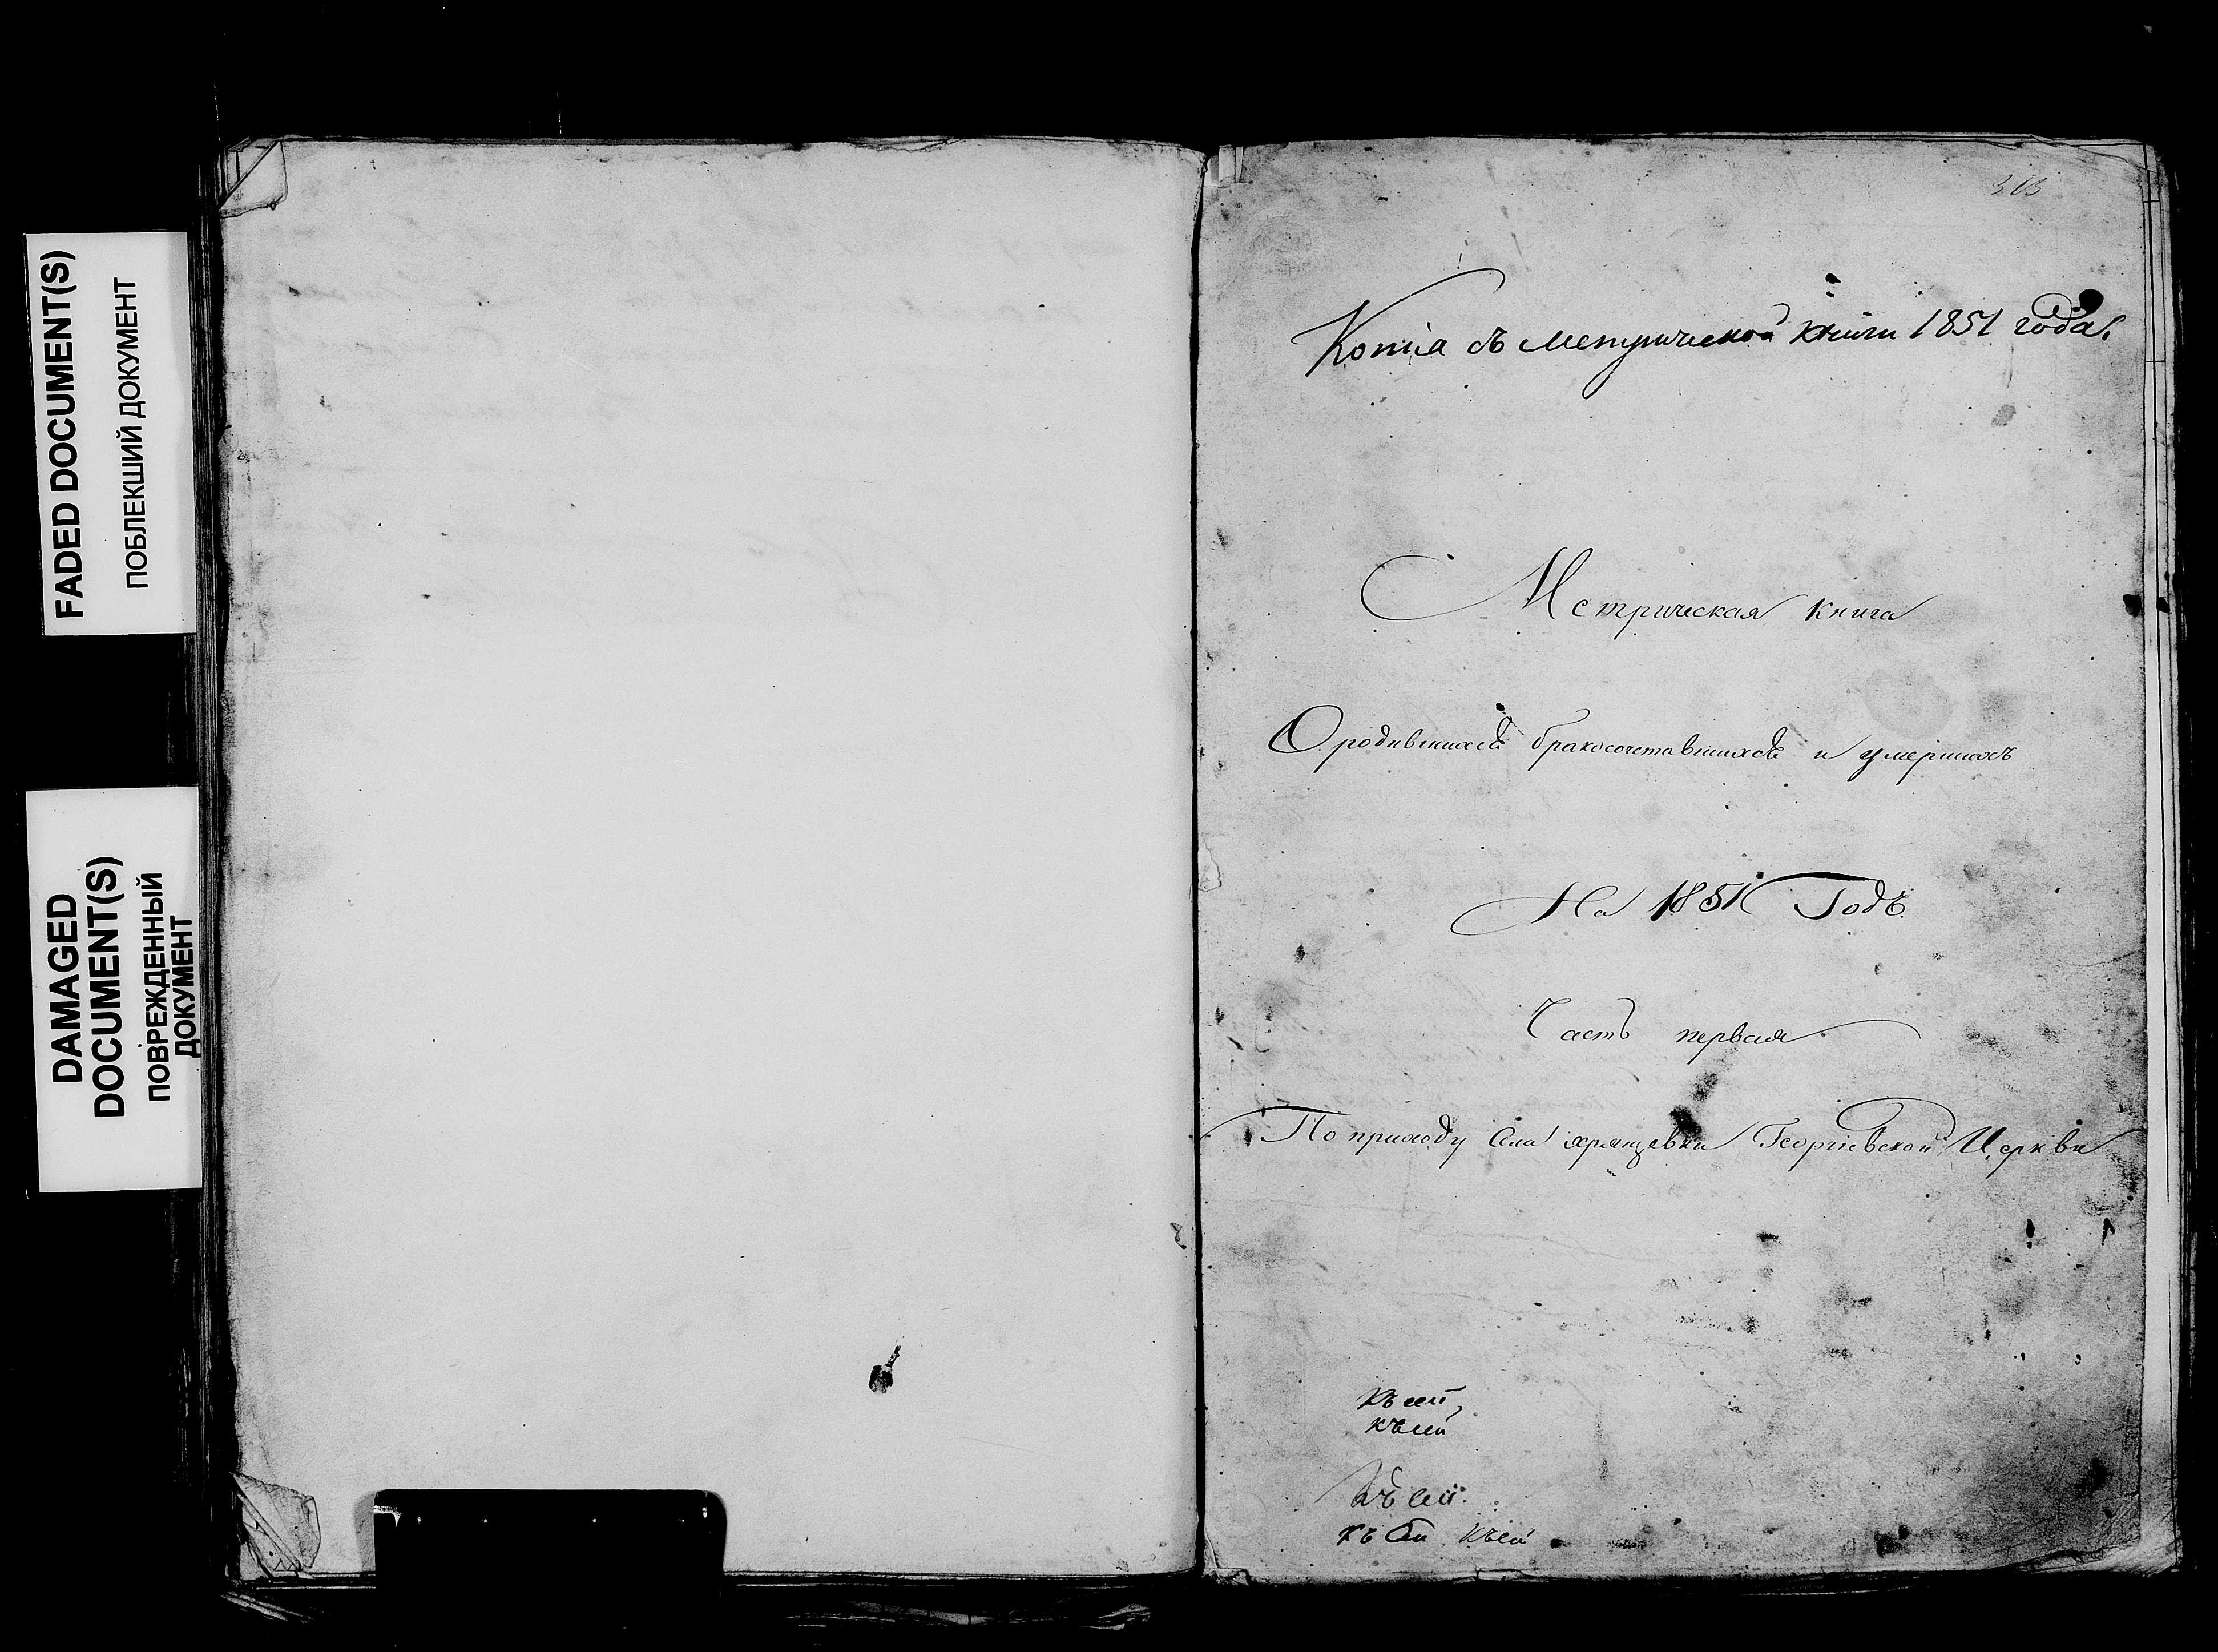 FADED DOCUMENT(S)
ПОБЛЕКШИЙ ДОКУМЕНТ
DAMAGED
DOCUMENT(S)
ПОВРЕЖДЕННЫЙ
ДОКУМЕНТ
Копiя съ метрической книги 1851 года.
Метрическая книга
О родившихся бракосочетавшихся и умершихъ
На 1851 Годъ
Часть первая
По приходу Села Хрящевки Георгiевской Церкви
къ сей
къ сей
Къ сей
къ сей къ сей